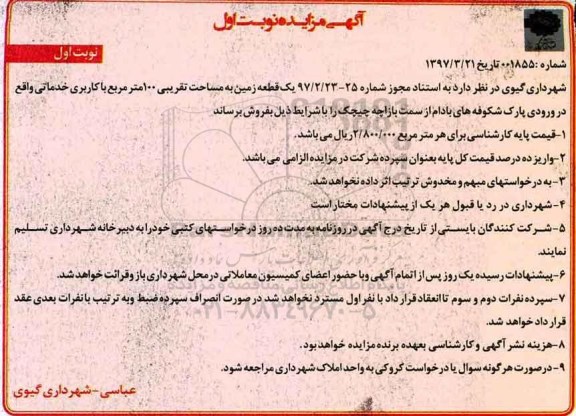 آگهی مزایده نوبت اول
نوبت اول
شماره :۰۰۱۸۵۵ تاریخ ۱۳۹۷/۳/۲۱
شهرداری گیوی در نظر دارد به استناد مجوز شماره ۲۵-۹۷/۲/۲۳ یک قطعه زمین به مساحت تقریبی ۱۰۰متر مربع با کاربری خدماتی واقع
در ورودی پارک شکوفه های بادام از سمت بازاچه چیچک را با شرایط ذیل بفروش برساند
۱-قیمت پایه کارشناسی برای هر متر مربع ۲/۸۰۰/۰۰۰ریال می باشد.
۲-واریز ده درصد قیمت کل پایه بعنوان سپرده شرکت در مزایده الزامی می باشد.
۳-به درخواستهای مبهم و مخدوش ترتیب اثر داده نخواهد شد.
۴-شهرداری در رد یا قبول هر یک از پیشنهادات مختار است
۵-شرکت کنندگان بایستی از تاریخ درج آگهی در روزنامه به مدت ده روز درخواستهای کتبی خود را به دبیرخانه شهرداری تسلیم
نمایند.
۶-پیشنهادات رسیده یک روز پس از اتمام آگهی وبا حضور اعضای کمیسیون معاملاتی در محل شهرداری باز وقرائت خواهد شد.
۷-سپرده نفرات دوم و سوم تا انعقاد قرار داد با نفر اول مسترد نخواهد شد در صورت انصراف سپرده ضبط وبه ترتیب با نفرات بعدی عقد
قرار داد خواهد شد.
۸-هزینه نشر آگهی و کارشناسی بعهده برنده مزایده خواهد بود.
۹-در صورت هر گونه سوال یا درخواست کروکی به واحد املاک شهرداری مراجعه شود.
عباسی-شهرداری گیوی
۰۲۱-۸۸۳۴۹۶۷۰-۵